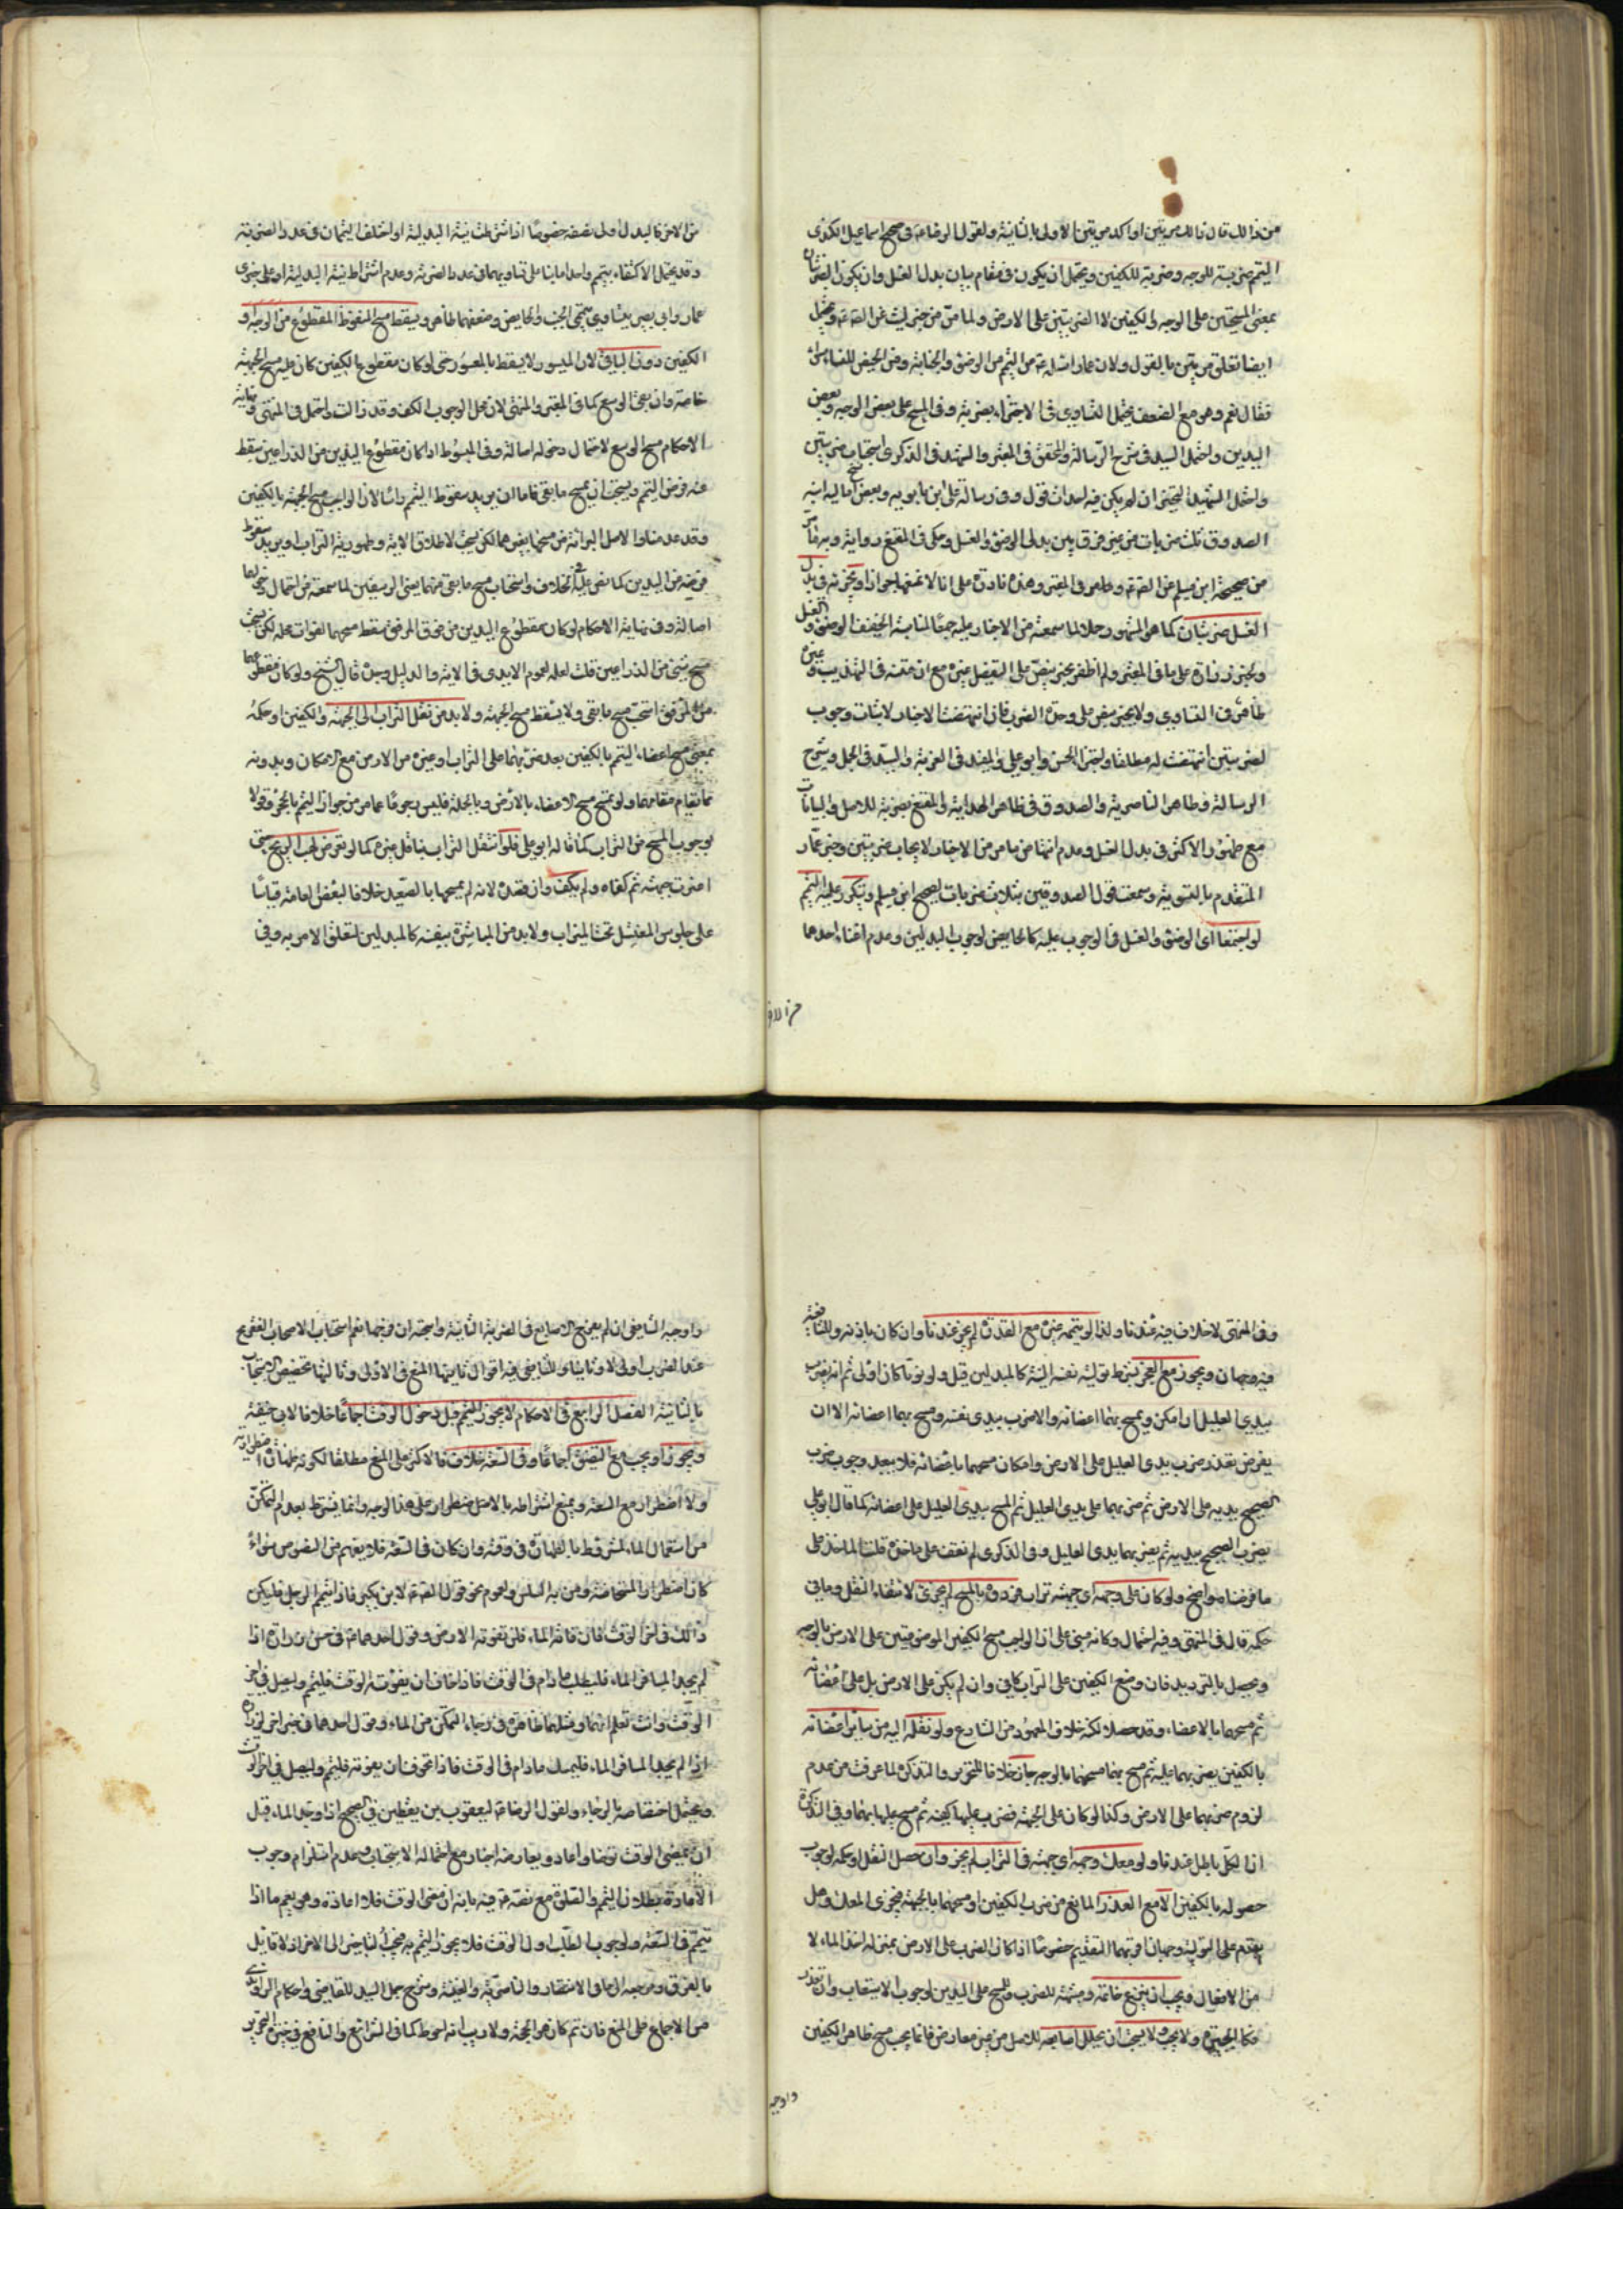 من ذلك قال ذلك مرتين او اكد مرتين الاولى بالثانية ولقول الرضا ع في صحيح اسماعيل الكندي
التيمم ضربة للوجه وضربة للكفين ويحتمل ان يكون في مقام بيان بدل الغسل وان يكون الضربتان
بمعنى المسحتين على الوجه والكفين لا الضربتين على الارض ولما مر من خبر ليث عن الصادق ع ويحتمل
ايضا تعلق مرتين بالقول ولان عمار اسأله ع من التيمم من الوضوء والجنابة ومن الحيض للنساء سواء
فقال نعم وهو مع الضعف يحتمل التساوي في الاجتزاء بضربة وفي المسح على بعض الوجه وبعض
اليدين واحتمل السيد في شرح الرسالة والمحقق في المعتبر والشهيد في الذكرى استحباب ضربتين
واحتمل الشهيد التخيير ان لم يكن فيه احداث قول وفي رسالة على ابن بابويه وبعض نسخ امالي ابنه
الصدوق ثلث ضربات من غير فرق بين بدلي الوضوء والغسل وحكى في المقنع رواية وبه ما مر
من صحيحة ابن مسلم عن الصادق ع وظاهر في المعتبر وهذه نادرة على انا لا نمنعها جوازا ويجزئه في بدل
الغسل ضربتان كما هو المشهور حملا لما سمعته من الاخبار عليه جمعا لمناسبة التخفيف الوضوء والغسل
وبخبر زرارة على ما في المعتبر ولم اظفر بخبر ينص على التفصيل غيره مع ان متنه في التهذيب وغيره
ظاهر في التساوي ولا يخبر بنص على وحدة الضرب فان انتهضت الاخبار لاثبات وجوب
الضربتين انتهضت له مطلقا واجتزأ الحسن وابو علي والمفيد في الغرية والسيد في الجمل وشرح
الرسالة وظاهر الناصرية والصدوق في ظاهر الهداية والمقنع بضربة للاصل والبيانات
مع ظهور الاكثر في بدل الغسل وعدم انتهاض ما مر من الاخبار لايجاب ضربتين وخبر عمار
المتقدم بالتسوية وسمعت قول الصدوقين بثلاث ضربات لصحيح ابن مسلم ويتكرر عليه التيمم
لو اجتمعا اي الوضوء والغسل في الوجوب عليه كالحايض لوجوب البدلين وعدم اغناء احدهما
من الاخر
من الاخر كالبدل اولى بضعفه خصوصا اذا اشترطت نية البدلية او اختلف التيممان في عدد الضربة
وقد يحتمل الاكتفاء بتيمم واحد اما بناء على تساويهما في عدد الضربة وعدم اشتراط نية البدلية او على خبري
عمار وابي بصير بتساوي تيممي الجنب والحايض وضعفهما ظاهر ويسقط مسح المفقود المقطوع من الوجه او
الكفين دون الباقي لان الميسور لا يسقط بالمعسور حتى لو كان مقطوع الكفين كان عليه مسح الجبهة
خاصة وان بقى الرسغ كما في المعتبر والمنتهى لان محل الوجوب الكف وقد زالت واحتمل في المنتهى ونهاية
الاحكام مسح الرسغ لاحتمال دخوله اصالة وفي المبسوط اذا كان مقطوع اليدين من الذراعين سقط
عنه فرض التيمم ويستحب ان يمسح ما بقى فاما ان يريد سقوط التيمم رأسا لان الواجب مسح الجبهة بالكفين
وقد عدمتا والاصل البرائة من مسحها بغيرهما لكن يستحب لاطلاق الاية وطهورية التراب او يريد سقوط
فرضه عن اليدين كما نص عليه في الخلاف واستحباب مسح ما بقى منهما يعنى المرفقين لما سمعته من احتمال دخولهما
اصالة وفي نهاية الاحكام لو كان مقطوع اليدين من فوق المرفق سقط مسحهما لفوات محله لكن يستحب
مسح شئ من الذراعين قلت لعله لعموم الايدي في الاية والدليل وبين قال الشيخ ولو كان مقطوعا
من المرفق استحب مسح ما بقى ولا يسقط مسح الجبهة ولا بد من نقل التراب الى الجبهة والكفين او حكمه
بمعنى مسح اعضاء التيمم بالكفين بعد ضربهما على التراب او غيره من الارض مع الامكان وبدونه
ما يقام مقامهما ولو بمسح الاعضاء بالارض وبالجملة فليس رجوعا عما مر من جواز التيمم بالحجر وقولا
بوجوب المسح من التراب كما قاله ابو علي فلو انتقل التراب بناقل غيره كما لو تعرض لمهب الريح حتى
اغبرت جبهته ثم كفاه ولم يكف وان قصده لانه لم يمسحها بالصعيد خلافا لبعض العامة قياسا
على جلوس المغتسل تحت الميزاب ولا بد من المباشرة بنفسه كالمبدلين لتعلق الامر به وفي
وفي المنتهى لا خلاف فيه عندنا ولذا لو يممه غيره مع القدرة لم يجز عندنا وان كان باذنه وللشافعية
فيه وجهان ويجوز مع العجز بشرط توليه نفسه النية كالمبدلين قيل ولو نويا كان اولى ثم انه يضرب
بيدي العليل ان امكن ويمسح بهما اعضائه والا ضرب بيدي نفسه ومسح بهما اعضائه الا ان
يفرض تعذر ضرب يدي العليل على الارض وامكان مسحهما باعضائه فلا يبعد وجوب ضرب
الصحيح يديه على الارض ثم ضربهما على يدي العليل ثم المسح بيدي العليل على اعضائه كما قال ابو علي
يضرب الصحيح بيديه ثم يضرب بهما يدي العليل وفي الذكرى لم نقف على مأخذه قلت المأخذ على
ما فرضناه واضح ولو كان على وجهه اي جبهته تراب فردده بالمسح لم يجزئ لانتفاء النقل وما في
حكمه قال في المنتهى وفيه احتمال وكانه مبنى على ان الواجب مسح الكفين الموضوعتين على الارض بالوجه
ويحصل بالترديد فان وضع الكفين على التراب كاف وان لم يكن على الارض بل على اعضائه
ثم مسحها بالاعضاء وقد حصلا لكنه خلاف المعهود من الشارع ولو نقله اليه من سائر اعضائه
بالكفين بضربهما عليه ثم مسح بهما مسحهما بالوجه جاز خلافا للتحرير والتذكرة لما عرفت من عدم
لزوم ضربهما على الارض وكذا لو كان على الجبهة فضرب عليها كفيه ثم مسح عليها بهما وفي التذكرة
ان الكل باطل عندنا ولو معك وجهه اي جبهته في التراب لم يجز وان حصل النقل او حكمه لوجوب
حصوله بالكفين الا مع العذر المانع من ضرب الكفين او مسحهما بالجبهة فيجزى المعك وهل
يقدم على التولية وجهان اقربهما التقديم خصوصا اذا كان الضرب على الارض بمنزلة اخذ الماء لا
من الافعال ويجب ان ينزع خاتمه وشبهه للضرب والمسح على اليدين لوجوب الاستيعاب وان تعذر
فكالجبيرة ولا يجب ولا يستحب ان يخلل اصابعه للاصل من غير معارض فانما يجب مسح ظاهر الكفين
واوجبه
واوجبه الشافعي ان لم يفرج الاصابع في الضربة الثانية واستحبه ان فرجها نعم استحباب الاصحاب التفريج
عند الضرب اولى لا وثانيا وللشافعي فيه اقوال ثانيها المنع في الاولى وثالثها تخصيص الاستحباب
بالثانية الفصل الرابع في الاحكام لا يجوز التيمم قبل دخول الوقت اجماعا خلافا لابي حنيفة
ويجوز او يجب مع التضيق اجماعا وفي السعة خلاف فالاكثر على المنع مطلقا لكونه طهارة اضطرارية
ولا اضطرار مع السعة ويمنع اشتراطه بالاضطرار على هذا الوجه وانما يشترط بعدم التمكن
من استعمال الماء لمشروط بالطهارة في وقته وان كان في السعة فلا يفهم من النصوص سواء
كان اضطرار المستحاضة ومن به السلس ولعموم نحو قول الصادق ع لابن بكير فاذا تيمم الرجل فليكن
ذلك في اخر الوقت فان فاته الماء فلن تفوته الارض وقول احدهما ع في حسن زرارة اذا
لم يجد المسافر الماء فليطلب ما دام في الوقت فاذا خاف ان يفوته الوقت فليتمم وليصل في اخر
الوقت وانت تعلم انهما ومثلهما ظاهرة في رجاء التمكن من الماء وقول احدهما في خبر اخر لزرارة
اذا لم يجد المسافر الماء فليمسك ما دام في الوقت فاذا تخوف ان يفوته فليتيمم وليصل في اخر الوقت
ويحتمل اختصاصه بالرجاء ولقول الرضا ع ليعقوب بن يقطين في الصحيح اذا وجد الماء قبل
ان يمضي الوقت توضأ واعاد ويعارضه اخبار مع احتماله الاستحباب وعدم استلزام وجوب
الاعادة بطلان التيمم والصلوة مع نصه ع فيه بانه ان مضى الوقت فلا اعادة وهو يعم ما اذا
تيمم في السعة ولوجوب الطلب اول الوقت فلا يجوز التيمم به فيجب التأخير الى الاخر اذ لا قائل
بالفرق وضعفه ظاهر وما في الانتصار والناصرية والغنية وشرح جمل السيد للقاضي واحكام الراوندي
من الاجماع على المنع فان تم كان هو الحجة ولا ريب انه احوط كما في الشرائع والنافع وخيرة التحرير